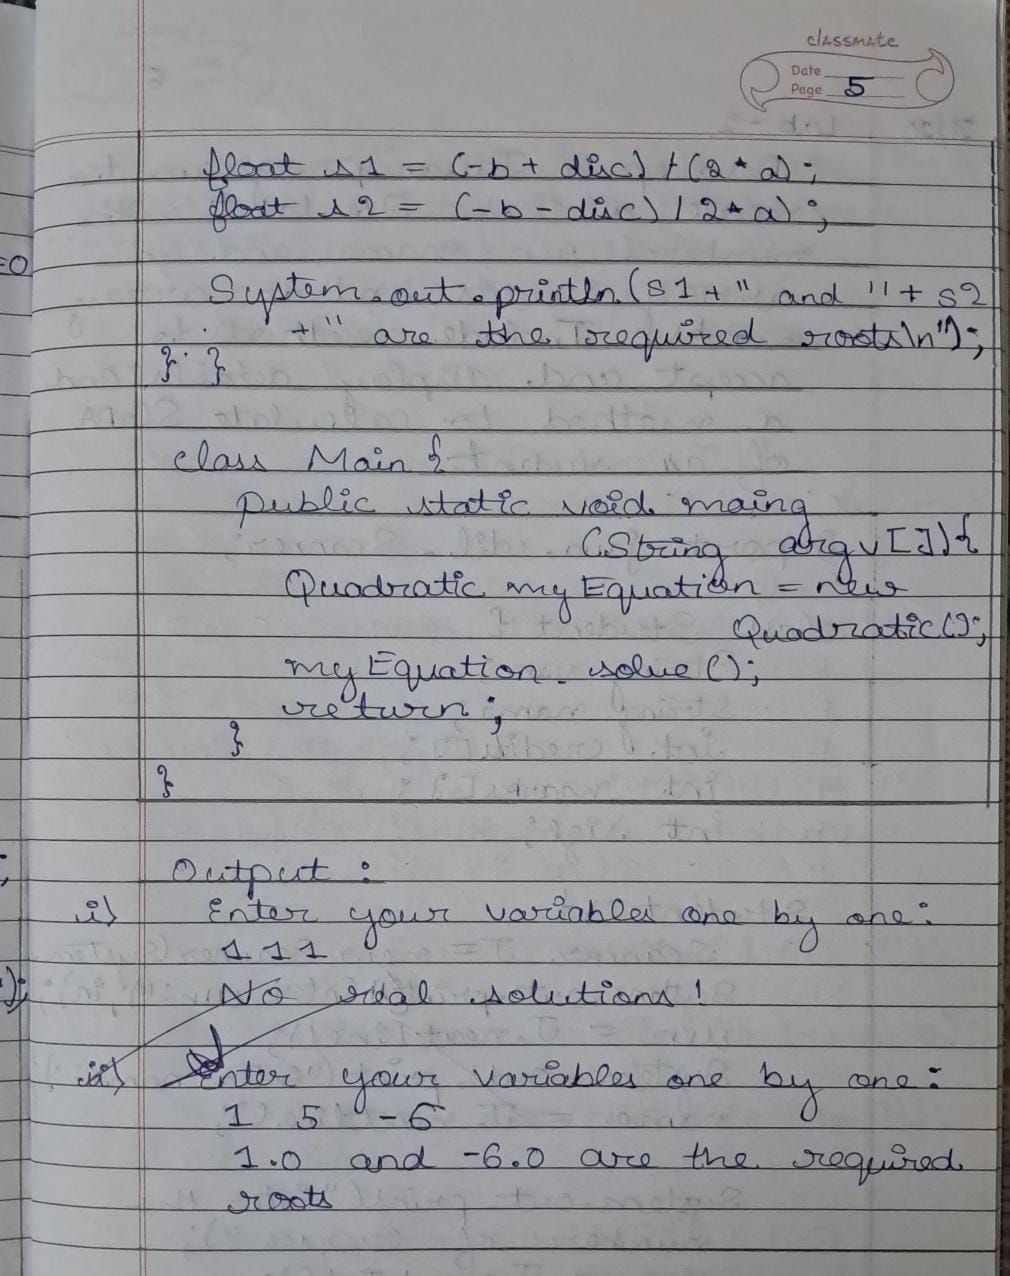 classmate
Date
Page 5
float s1 = (-b + disc) / (2 * a);
float s2 = (-b - disc) / 2 * a);
=0
System.out.println(s1+" and "+s2
+" are the required roots\n");
} }
class Main {
public static void maing
(String argv[]){
Quadratic myEquation = new
Quadratic();
myEquation.solve();
return;
}
}
;
Output :
i) Enter your variables one by one:
1 1 1
);
No real solutions!
ii) Enter your variables one by one:
1 5 -6
1.0 and -6.0 are the required
roots